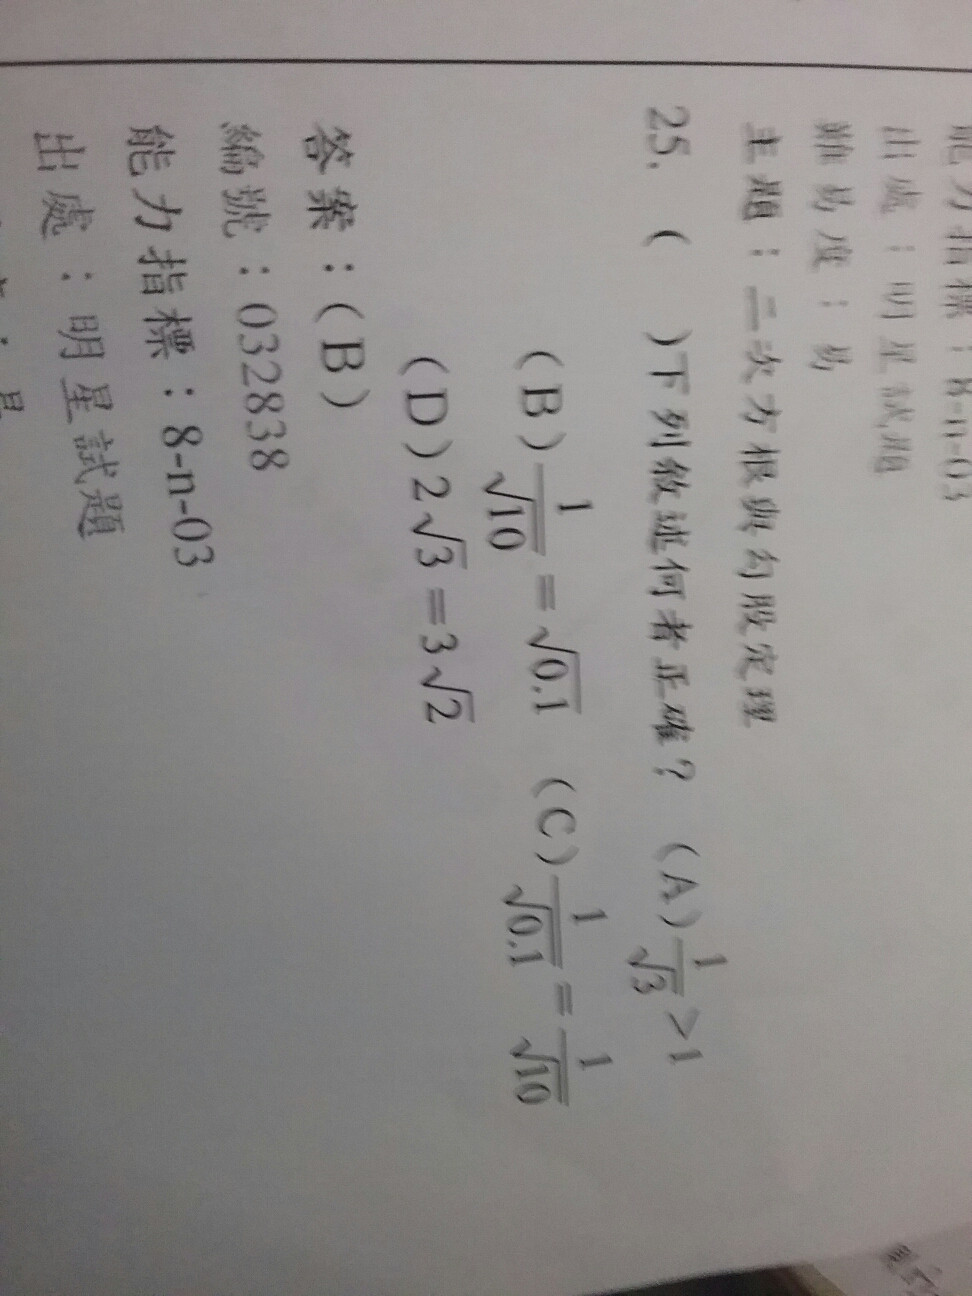 能力指標：8-n-03
出處：明星試題
難易度：易
主題：二次方根與勾股定理
25. (　)下列敘述何者正確？ (A) 1/√3 > 1
(B) 1/√10 = √0.1 (C) 1/√0.1 = 1/√10
(D) 2√3 = 3√2
答案：(B)
編號：032838
能力指標：8-n-03
出處：明星試題